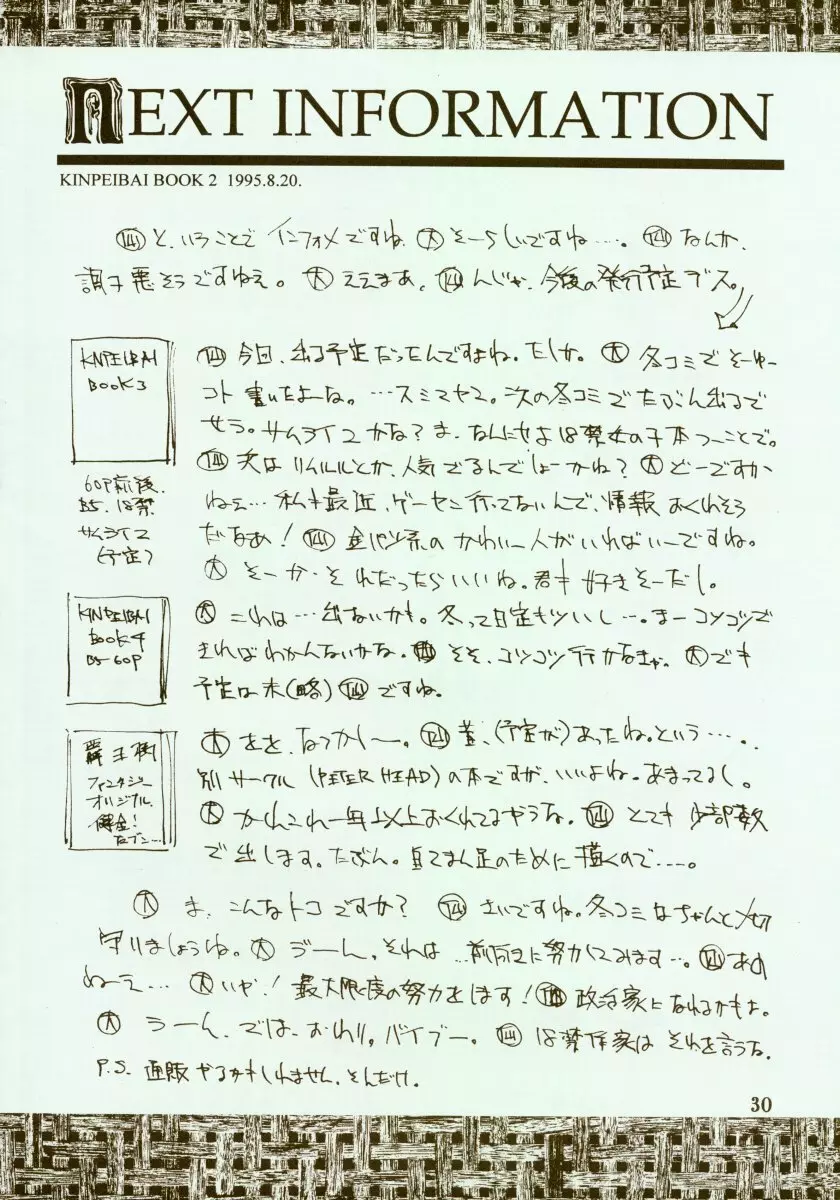 NEXT INFORMATION
KINPEIBAI BOOK 2 1995.8.20.
と、いうことで インフォメですね 大 そーらしいですね…。 なんか、
調子悪そうですねえ。 大 ええまあ、 んじゃ、今後の発行予定デス。
KINPEIBAI
BOOK3
60P前後、
B5、18禁
サムライ2
(予定)
今回、出る予定だったんですよね。たしか。 大 冬コミでそーゆー
コト書いたよーな。…スミマセン。次の冬コミでたぶん出るで
せう。サムライ2かな?ま、なんにせよ18禁女の子本つーことで。
次はリムルルとか、人気でるんでしょーかね? 大 どーですか
ねぇ…私も最近、ゲーセン行ってないんで、情報おくれそう
だなあ! 金パツ系のかわいー人がいればいーですね。
大 そーか・それだったらいいね。君も好きそーだし。
KINPEIBAI
BOOK4
B5-60P
大 これは…出ないかも。冬って日定もツいし…。まーコツコツで
きればわかんないかな。 そそ、コツコツ行かなきゃ。 大 でも
予定は未(略) ですね。
覇王樹
ファンタジー
オリジナル
大 をを、なつかし〜。 昔、(予定が)あったね。という…。
別サークル (PETER HEAD) の本ですが、いいよね。あまってるし。
大 かれこれ一年以上おくれてるやうな。 とても少部数
で出します。たぶん。自こまん足のために描くので…。
大 ま、こんなトコですか? さいですね。冬コミはちゃんと〆切
守りましょうね。 大 うーん、それは…前向きに努力してみます…。 あのねーえ…
大 いや!最大限度の努力をします! 政治家になれるかもよ。
大 うーん、では、おわり。バイブー。 18禁作家はそれを言うな。
P.S. 通販やるかもしれません、そんだけ。
30